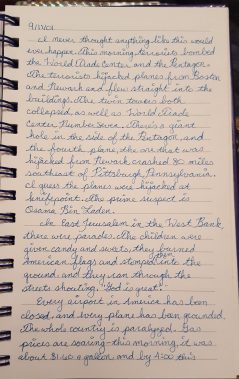 9/11/01
I never thought anything like this would
ever happen. This morning terrorists bombed
the World Trade Center and the Pentagon.
The terrorists hijacked planes from Boston
and Newark and flew straight into the
buildings. The twin towers both
collapsed, as well as World Trade
Center Number Seven. There's a giant
hole in the side of the Pentagon, and
the fourth plane, the one that was
hijacked from Newark crashed 80 miles
southeast of Pittsburgh Pennsylvania.
I guess the planes were hijacked at
knifepoint. The prime suspect is
Osama Bin Laden.
In East Jerusalem in the West Bank,
there were parades. The children were
given candy and sweets, they burned
American flags and stomped them into the
ground, and they ran through the
streets shouting, "God is great."
Every airport in America has been
closed, and every plane has been grounded.
The whole country is paralyzed. Gas
prices are soaring - this morning, it was
about $1.60 a gallon, and by 4:00 this